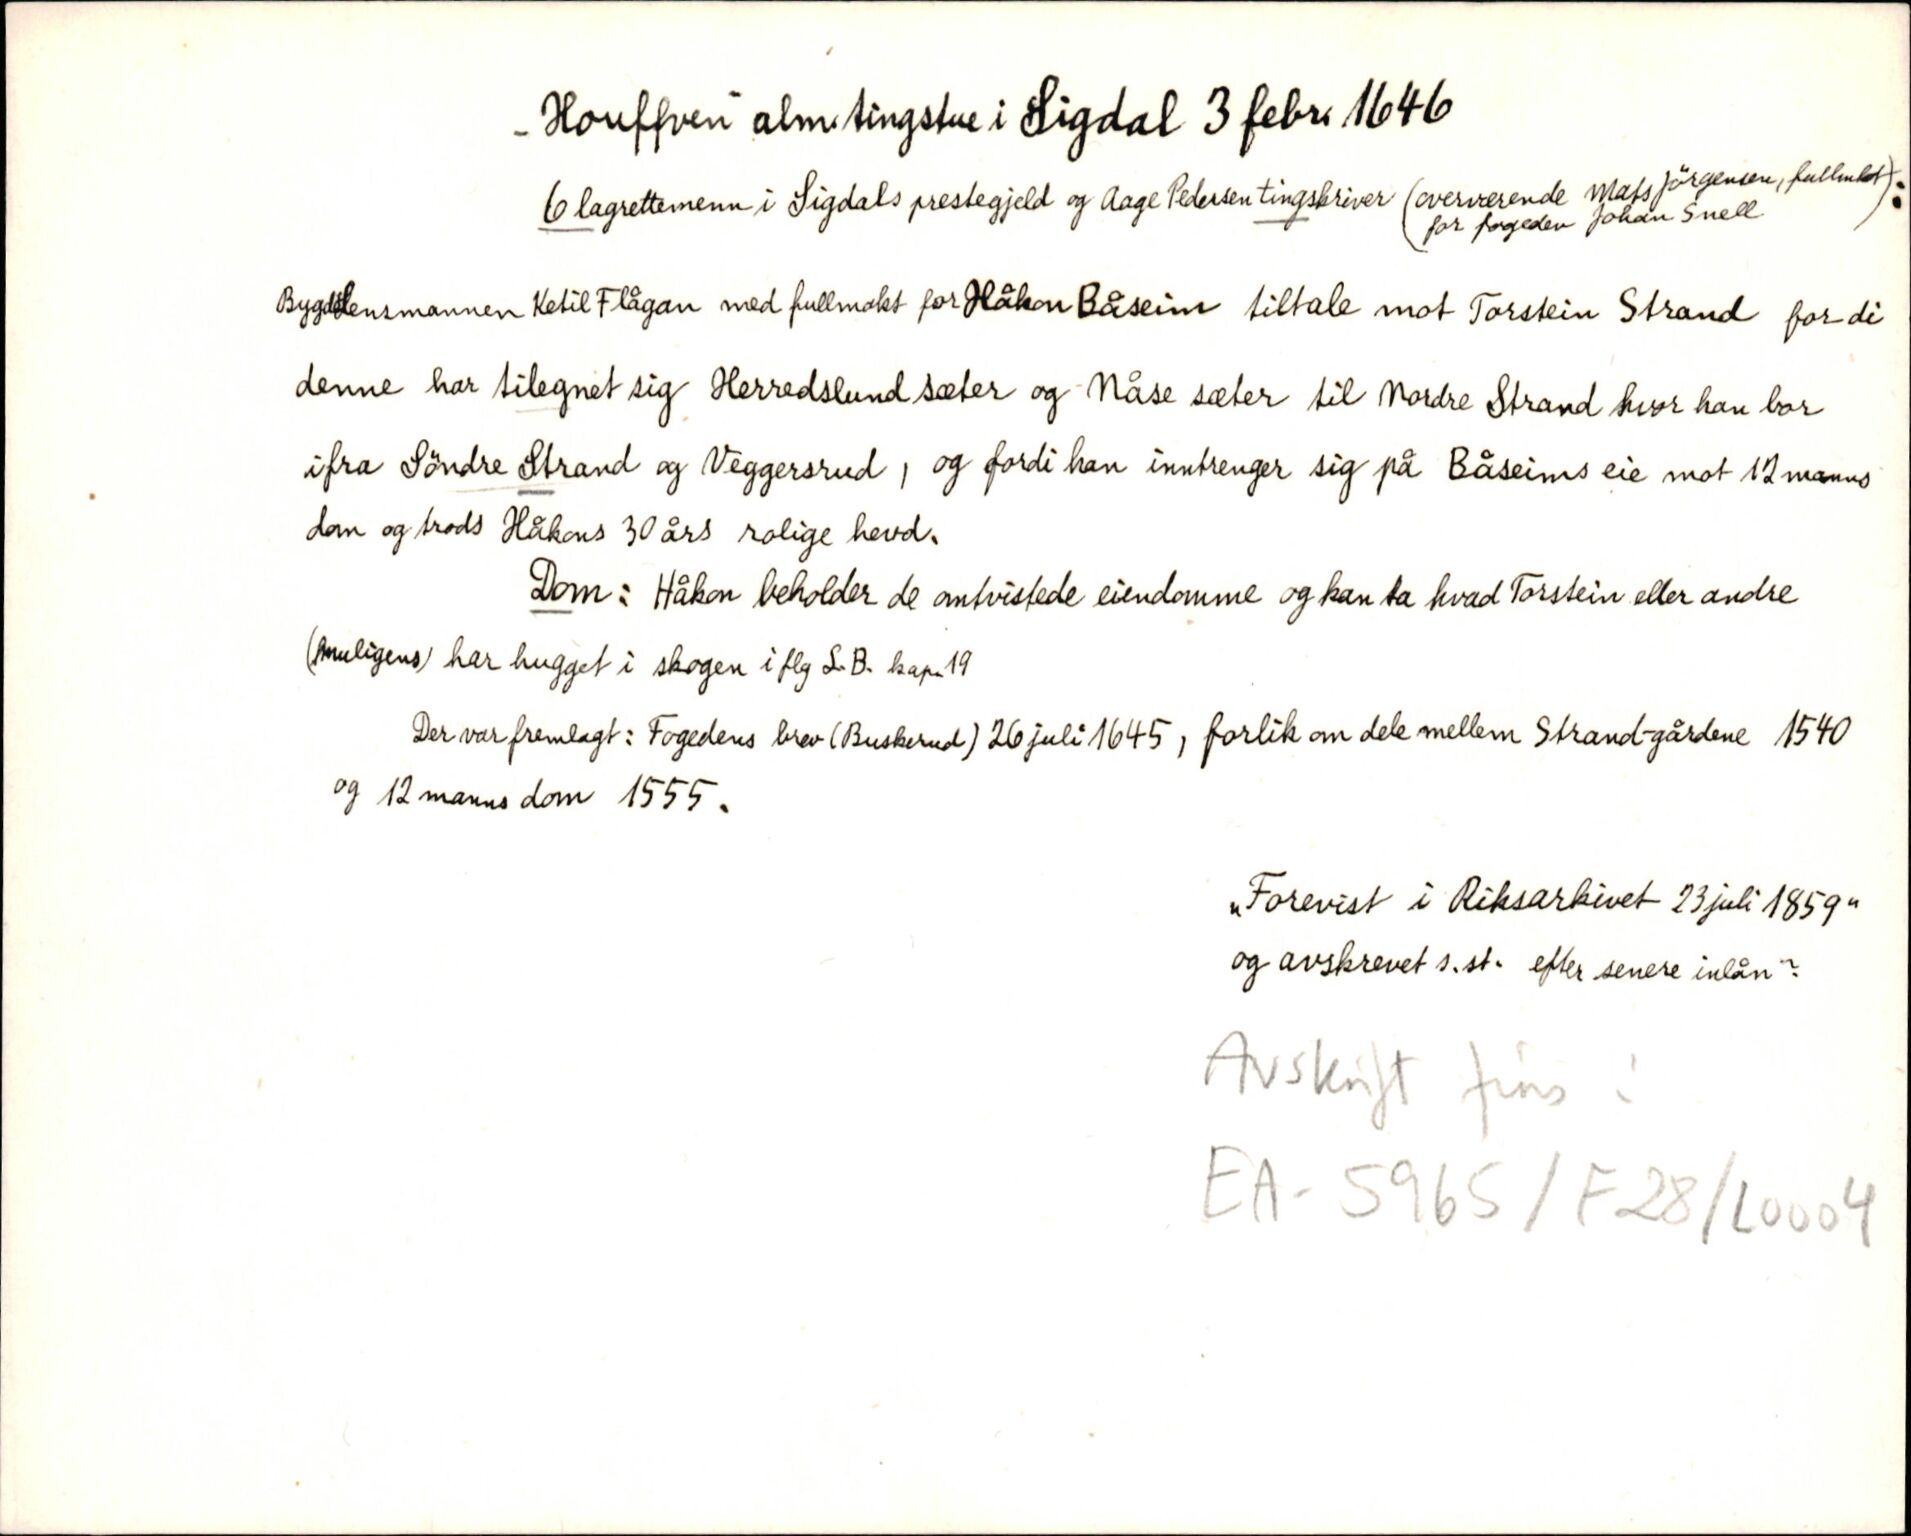 - Houffven alm. tingstue i Sigdal 3 febr. 1646
6 lagrettemenn i Sigdals prestegjeld og Aage Pedersen tingskriver (overværende Mats Jörgensen, fullmkt) :
for fogeden Johan Snell
Bygdelensmannen Ketil Flågan med fullmakt for Håkon Båseim tiltale mot Torstein Strand for di
denne har tilegnet sig Herredslund sæter og Nåse sæter til Nordre Strand hvor han bor
ifra Söndre Strand og Veggersrud, og fordi han inntrenger sig på Båseims eie mot 12 manns
dom og trods Håkons 30 års rolige hevd.
Dom: Håkon beholder de omtvistede eiendomme og kan ta hvad Torstein eller andre
(muligens) har hugget i skogen iflg L.B. kap. 19
Der var fremlagt: Fogedens brev (Buskerud) 26 juli 1645, forlik om dele mellem Strand-gårdene 1540
og 12 manns dom 1555.
„Forevist i Riksarkivet 23 juli 1859"
og avskrevet s.st. efter senere inlån".
Avskrift fins i
EA-5965/F28/L0004